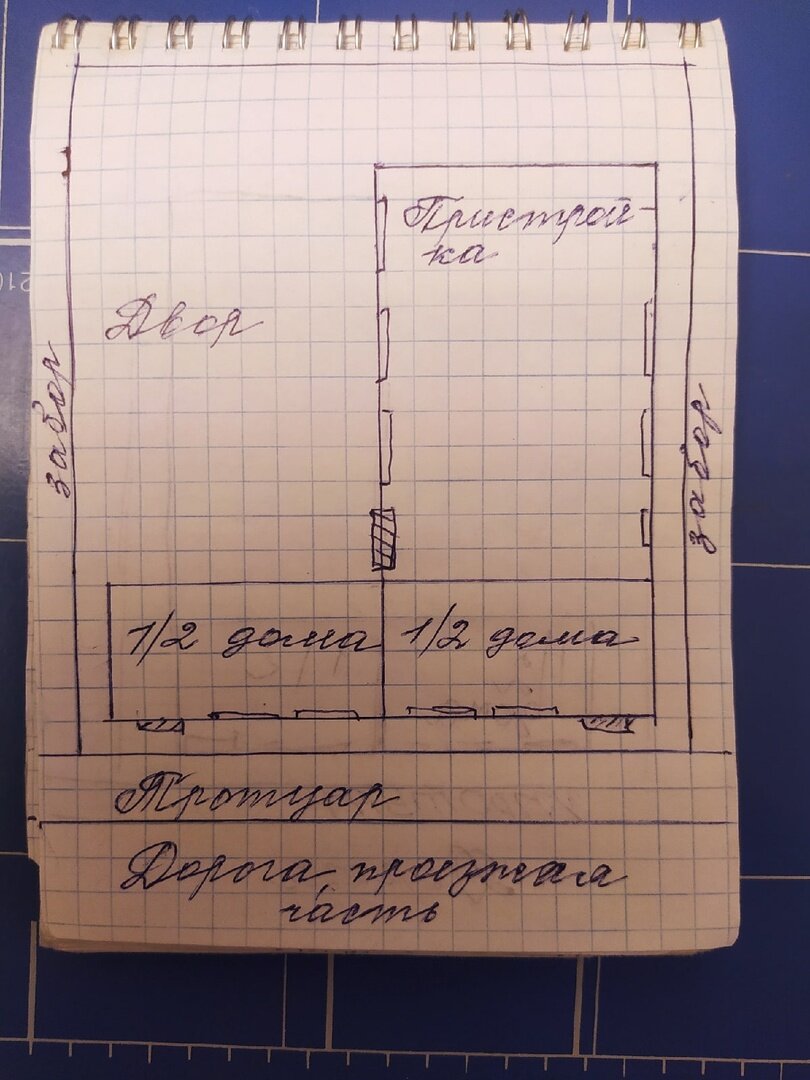 Пристрой-
ка
Двор
забор
забор
1/2 дома
1/2 дома
Тротуар
Дорога, проезжая
часть
210